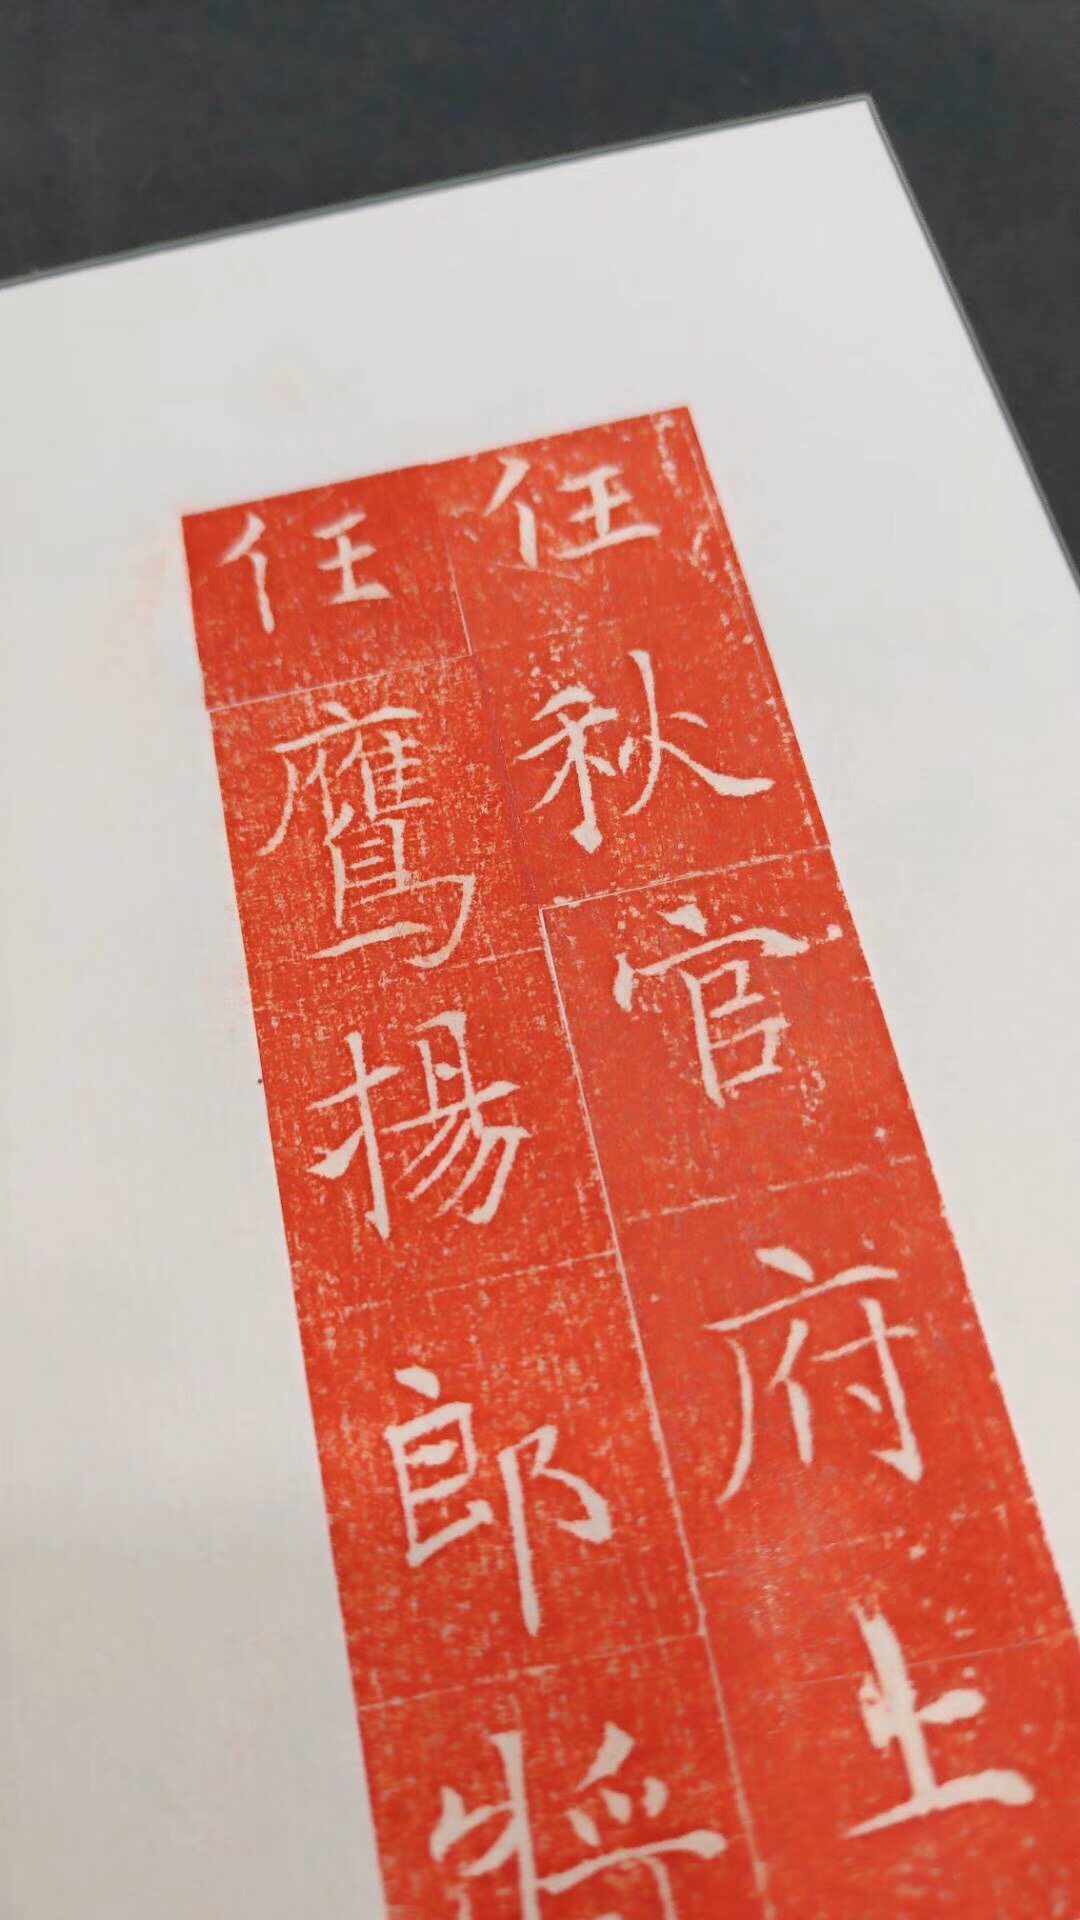 任秋官府上
任鷹揚郎將